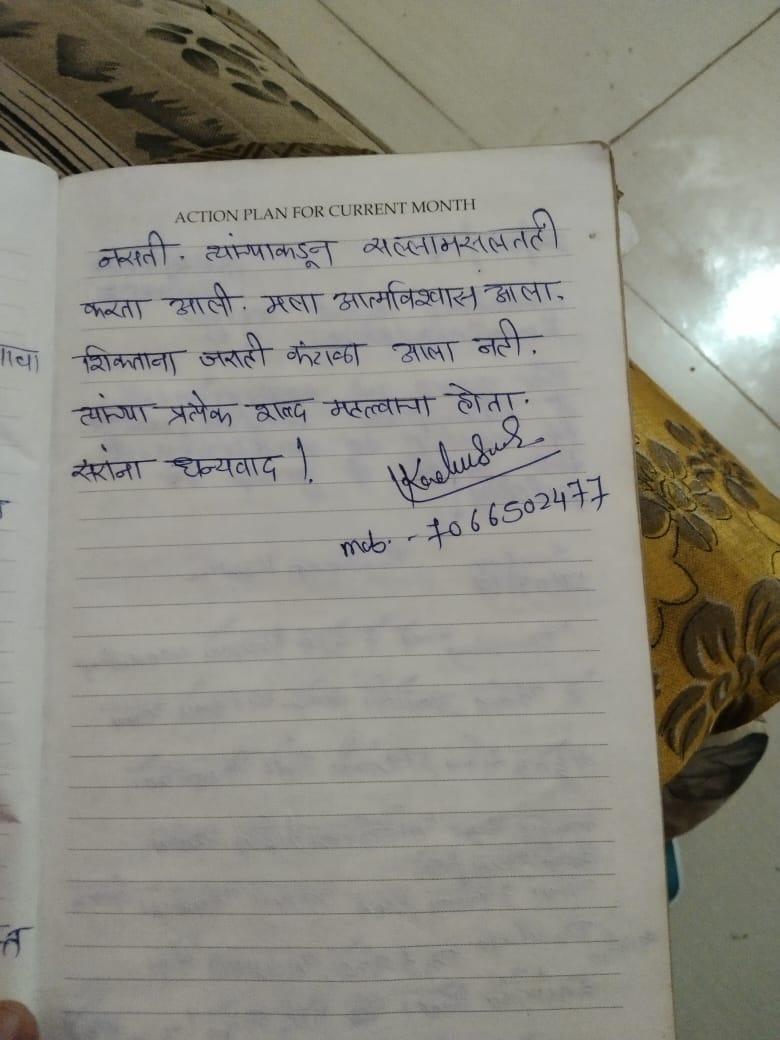 ACTION PLAN FOR CURRENT MONTH
नसती. त्यांच्याकडून सल्लामसलतही
करता आली. मला आत्मविश्वास आला.
शिकताना जराही कंटाळा आला नही.
त्यांच्या प्रत्येक शब्द महत्वाचा होता.
सरांना धन्यवाद!
mob. - 7066502477